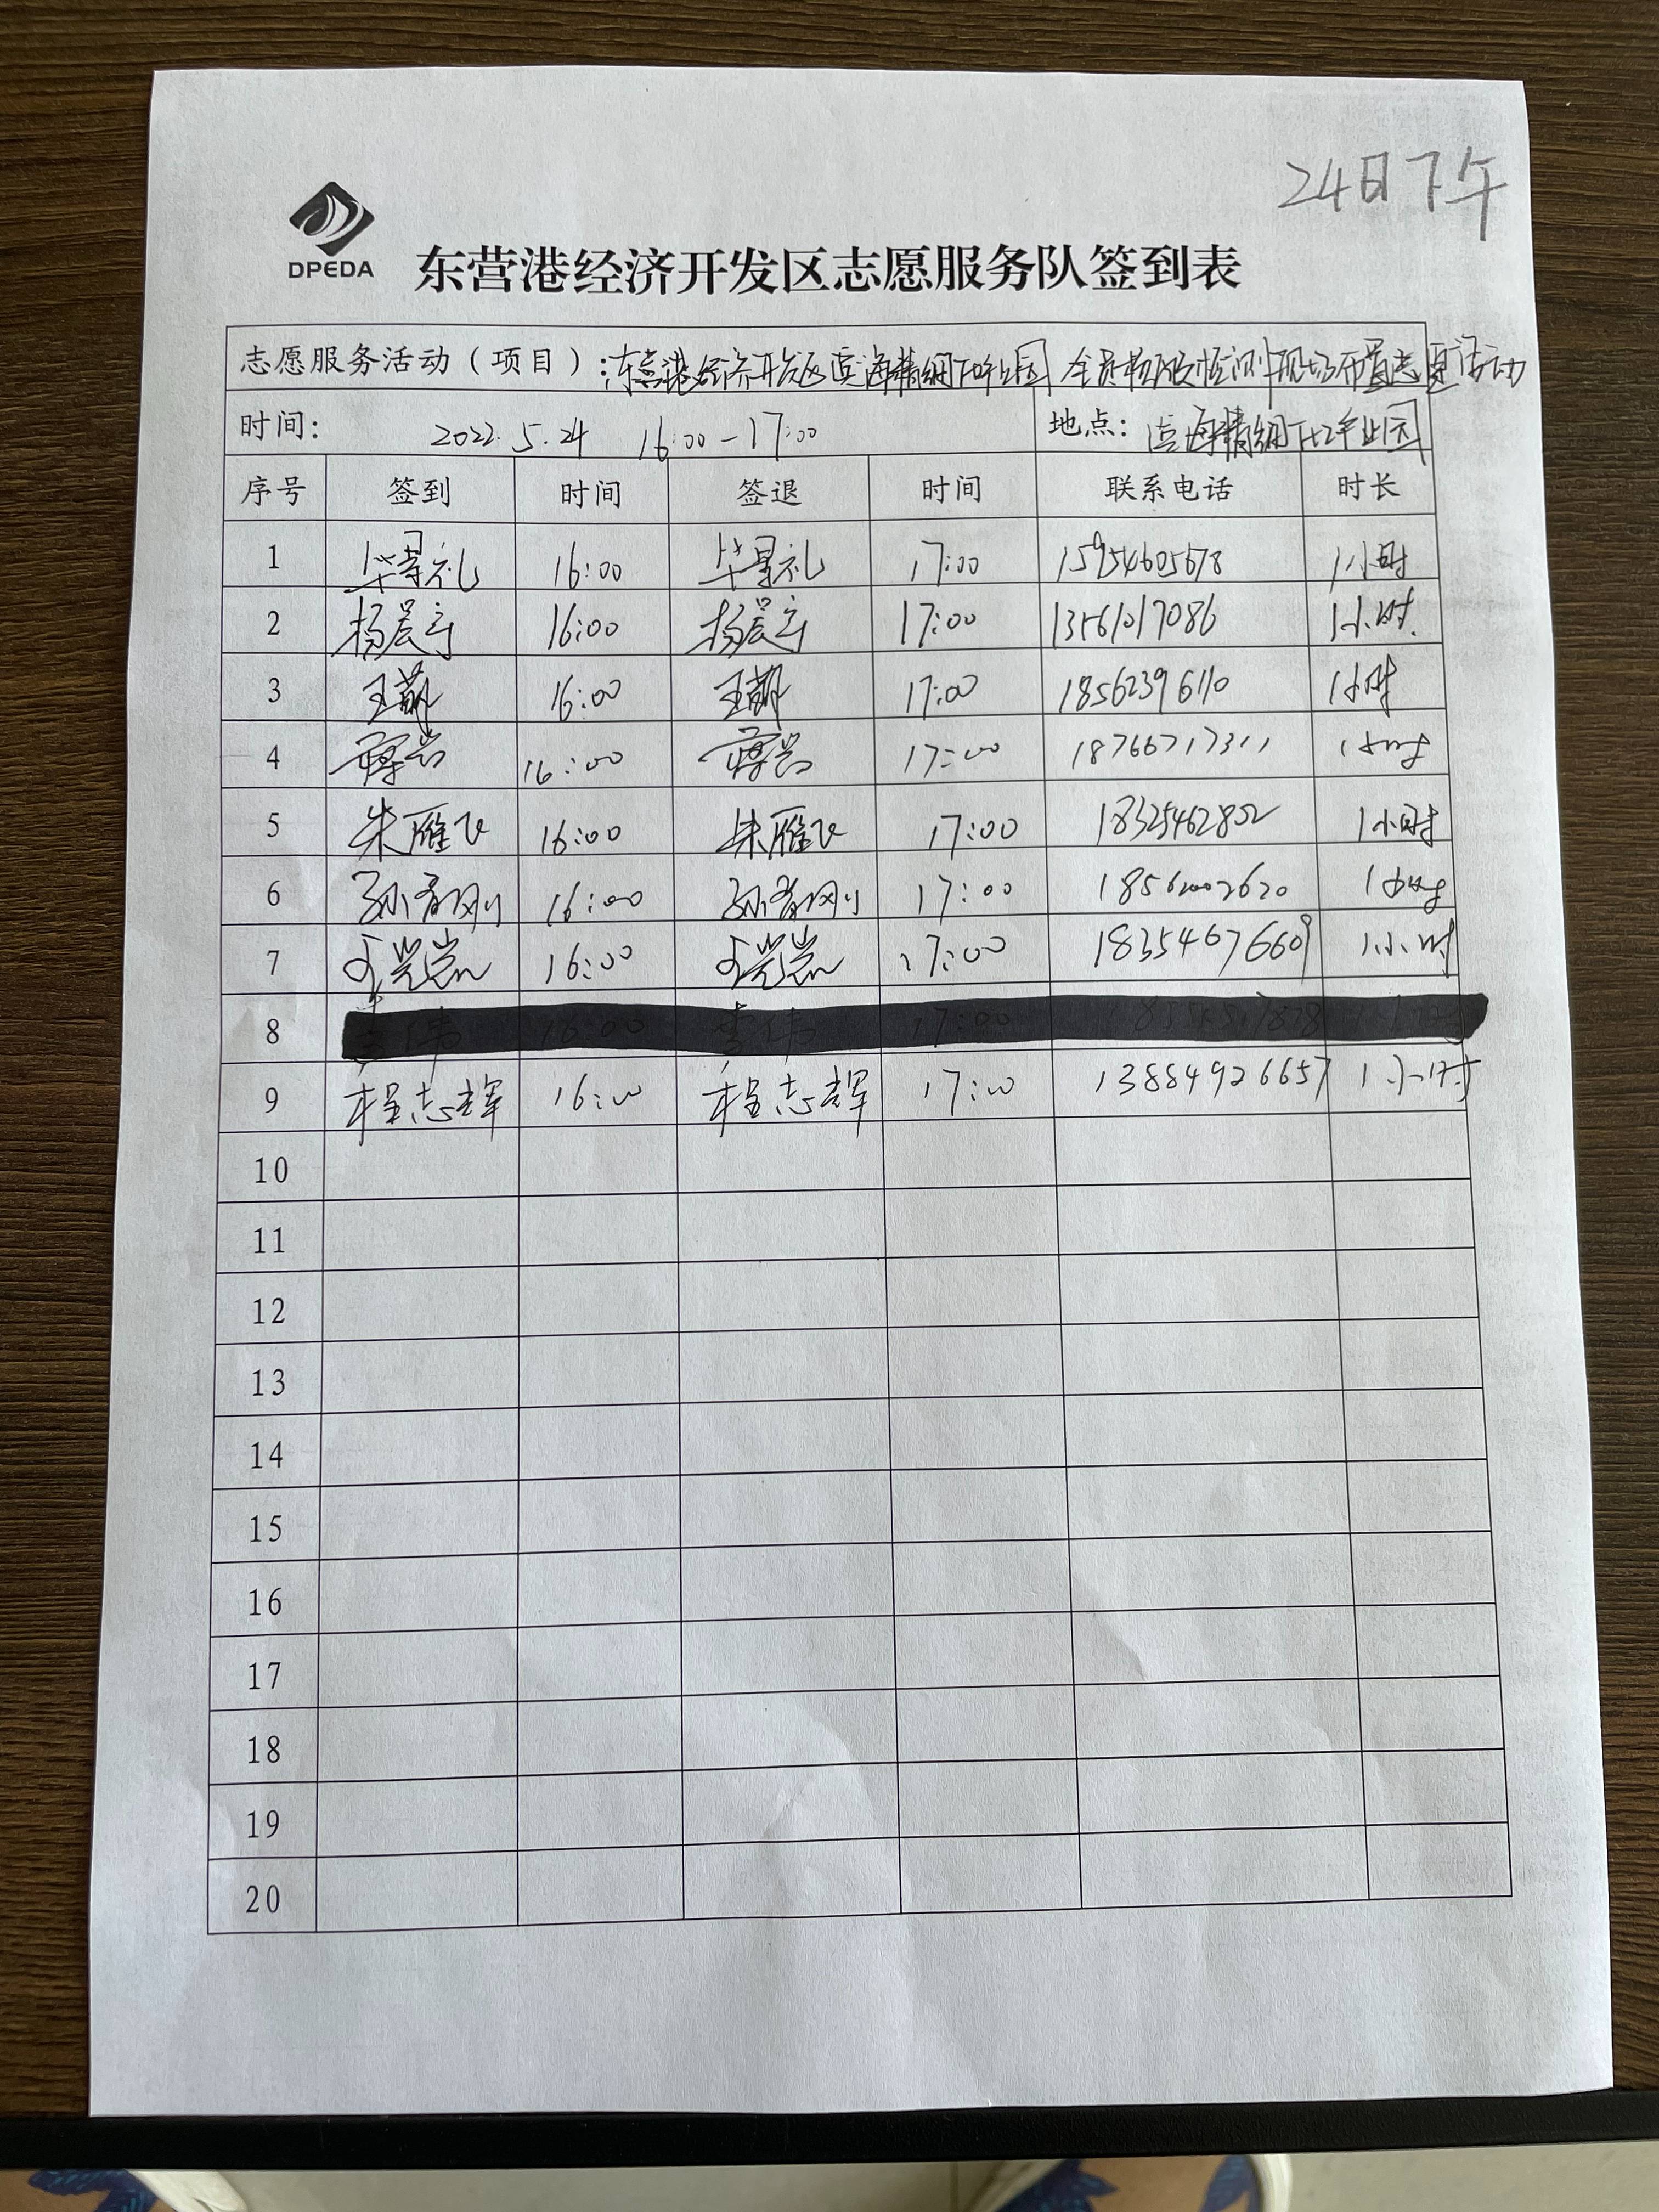 24日下午
DPEDA
东营港经济开发区志愿服务队签到表
志愿服务活动（项目）：东营港经济开发区滨海精细化工产业园 全员核酸检测现场布置志愿活动
时间： 2022.5.24 16:00-17:00 地点：滨海精细化工产业园
序号 签到 时间 签退 时间 联系电话 时长
1 毕景礼 16:00 毕景礼 17:00 15954605678 1小时
2 杨晨宇 16:00 杨晨宇 17:00 13561017086 1小时.
3 王萌 16:00 王萌 17:00 18562396110 1小时
4 16:00 17:00 18766717311 1小时
5 朱雁飞 16:00 朱雁飞 17:00 18325462802 1小时
6 16:00 17:00 18562002620 1小时
7 16:00 17:00 18354676609 1小时
8
9 程志辉 16:00 程志辉 17:00 13884926657 1小时
10
11
12
13
14
15
16
17
18
19
20